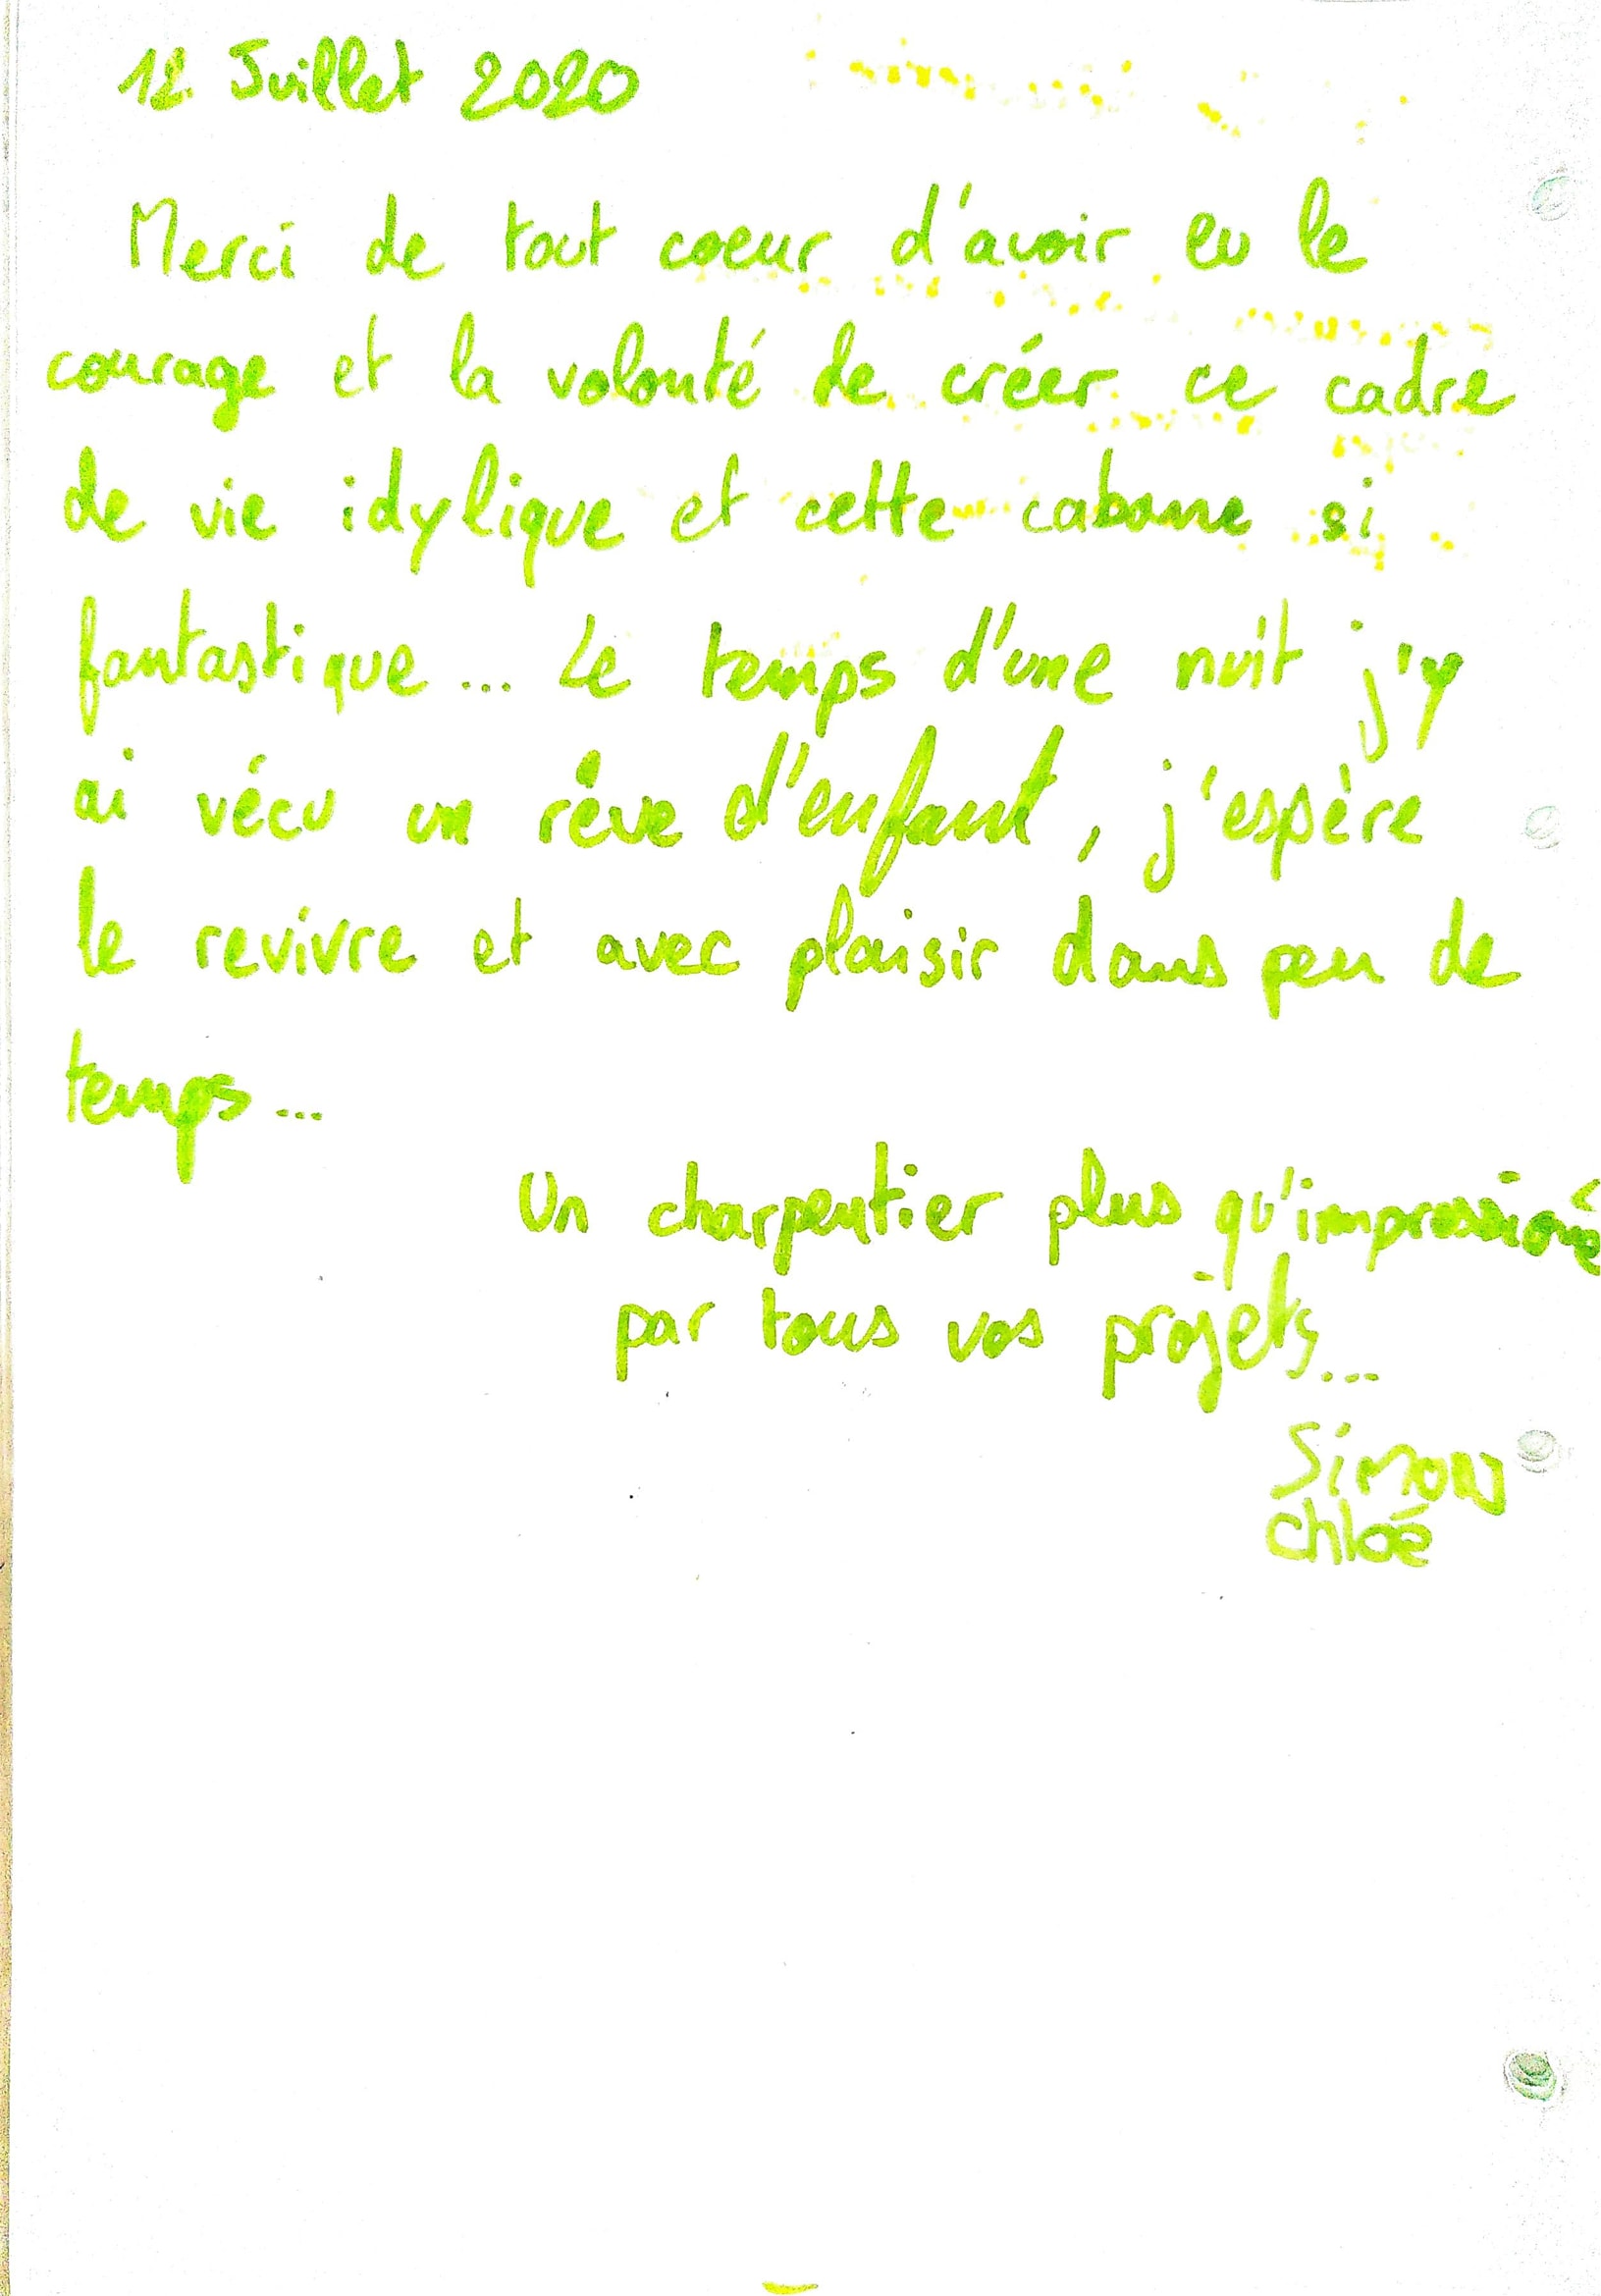 12 Juillet 2020
Merci de tout coeur d'avoir eu le
courage et la volonté de créer ce cadre
de vie idylique et cette cabane si
fantastique... Le temps d'une nuit j'y
ai vécu un rêve d'enfant, j'espère
le revivre et avec plaisir dans peu de
temps...
Un charpentier plus qu'impressioné
par tous vos projets...
SiMON
Chloé